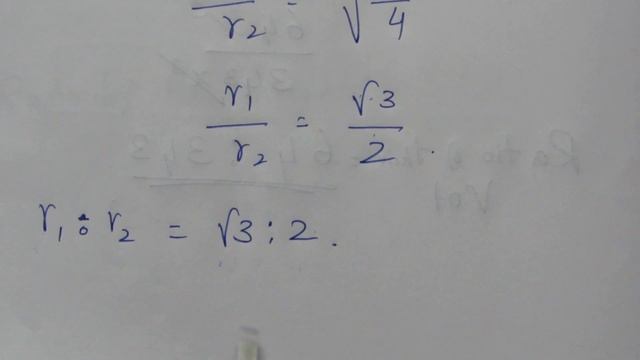 r₂ √ 4
r₁ / r₂ = √3 / 2 .
r₁ : r₂ = √3 : 2 .